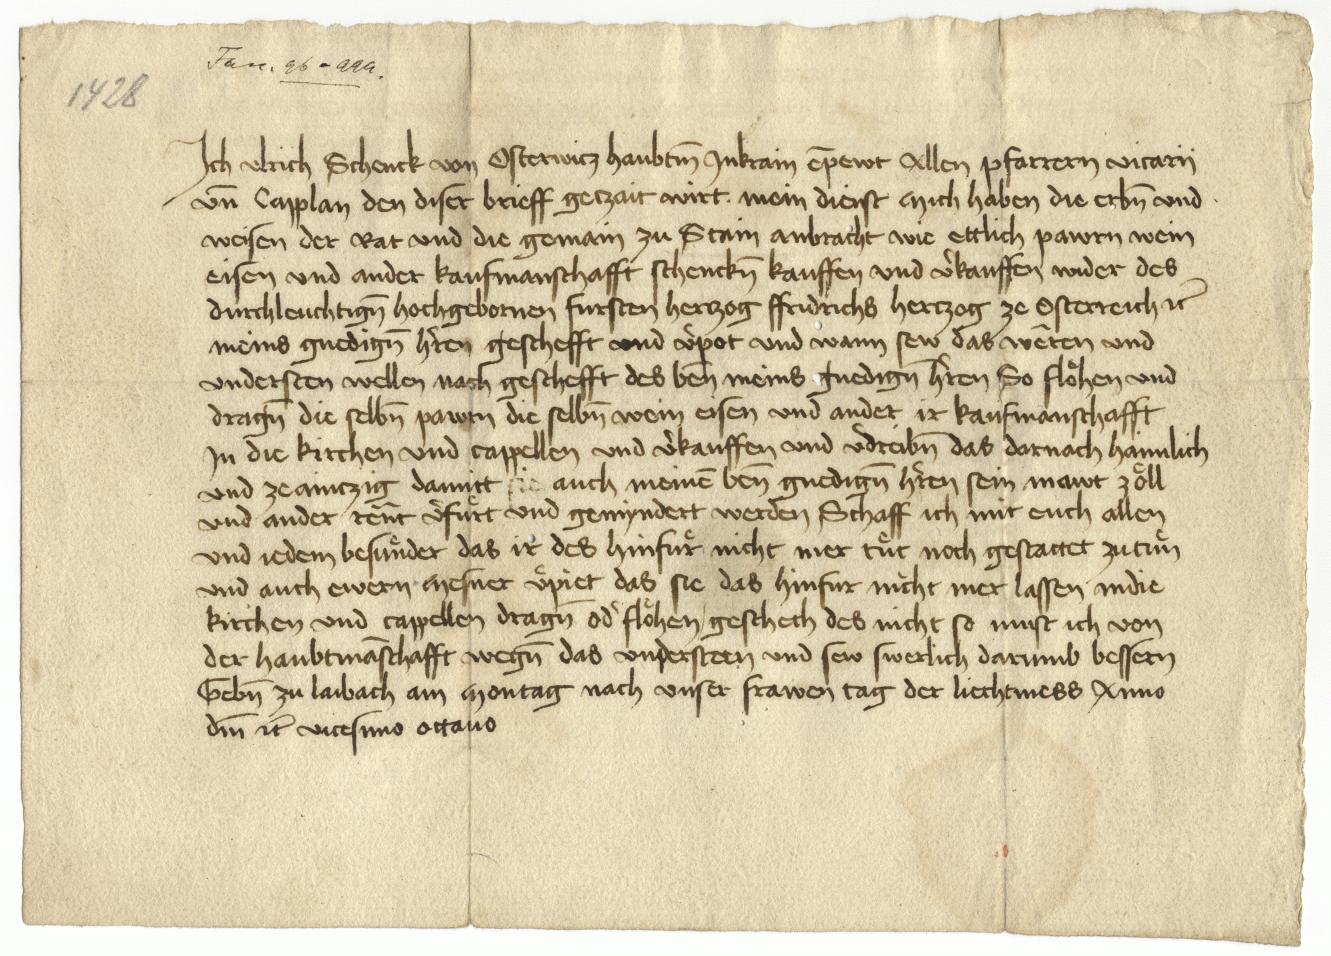 1428
Ich vlrich Schenck von Osterwicz haubtm̄ Inkrain ep̄ewt Allen pfarrern vicarij
vn̄ Capplan den diser brieff geczait wirt. mein dienst Mich haben die erbn̄ vnd
weisen der Rat vnd die gemain zu Stain anbracht wie ettlich pawrn wein
eisen vnd ander kaufmanschafft schenckn̄ kauffen vnd v̓kauffen wider des
durchleuchtign̄ hochgebornen fursten herczog ffridrichs herczog ze Osterreich ꝛc̄
meins gnedign̄ hr̄en geschefft vnd v̓pot vnd wann sew das weren vnd
understen wellen nach geschefft des ben̄ meins gnedign̄ hr̄en So flöhen vnd
dragn̄ die selbn̄ pawrn die selbn̄ wein eisen vnd ander ir kaufmanschafft
In die kirchen vnd cappellen vnd v̓kauffen vnd v̓treibn̄ das darnach haimlich
vnd ze aintzig damitt sie auch meinē ben̄ gnedign̄ hr̄en sein mawt zöll
vnd ander rēnt v̓fürt vnd gemyndert werden Schaff ich mit euch allen
vnd iedem besunder das ir des hinfur nicht mer tut noch gestattet zutun
vnd auch ewern Mesner v̓piet das sie das hinfur nicht mer lassen indie
kirchen vnd cappellen dragn̄ od̓ flöhen geschech des nicht so must ich von
der haubtmāschafft wegn̄ das understeen vnd sew swerlich darumb bessern
Gebn̄ zu laibach am Montag nach vnser frawen tag der liechtmess Anno
dm̄ ꝛc̄ vicesimo octauo